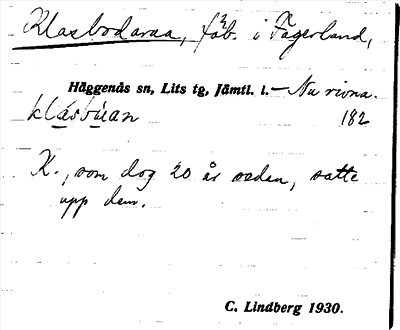 Klasbodarna, fäb. i Fågerland,
Häggenås sn, Lits tg, Jämtl. l. – Nu rivna.
klásbùan 182
K., som dog 20 år sedan, satte
upp dem.
C. Lindberg 1930.